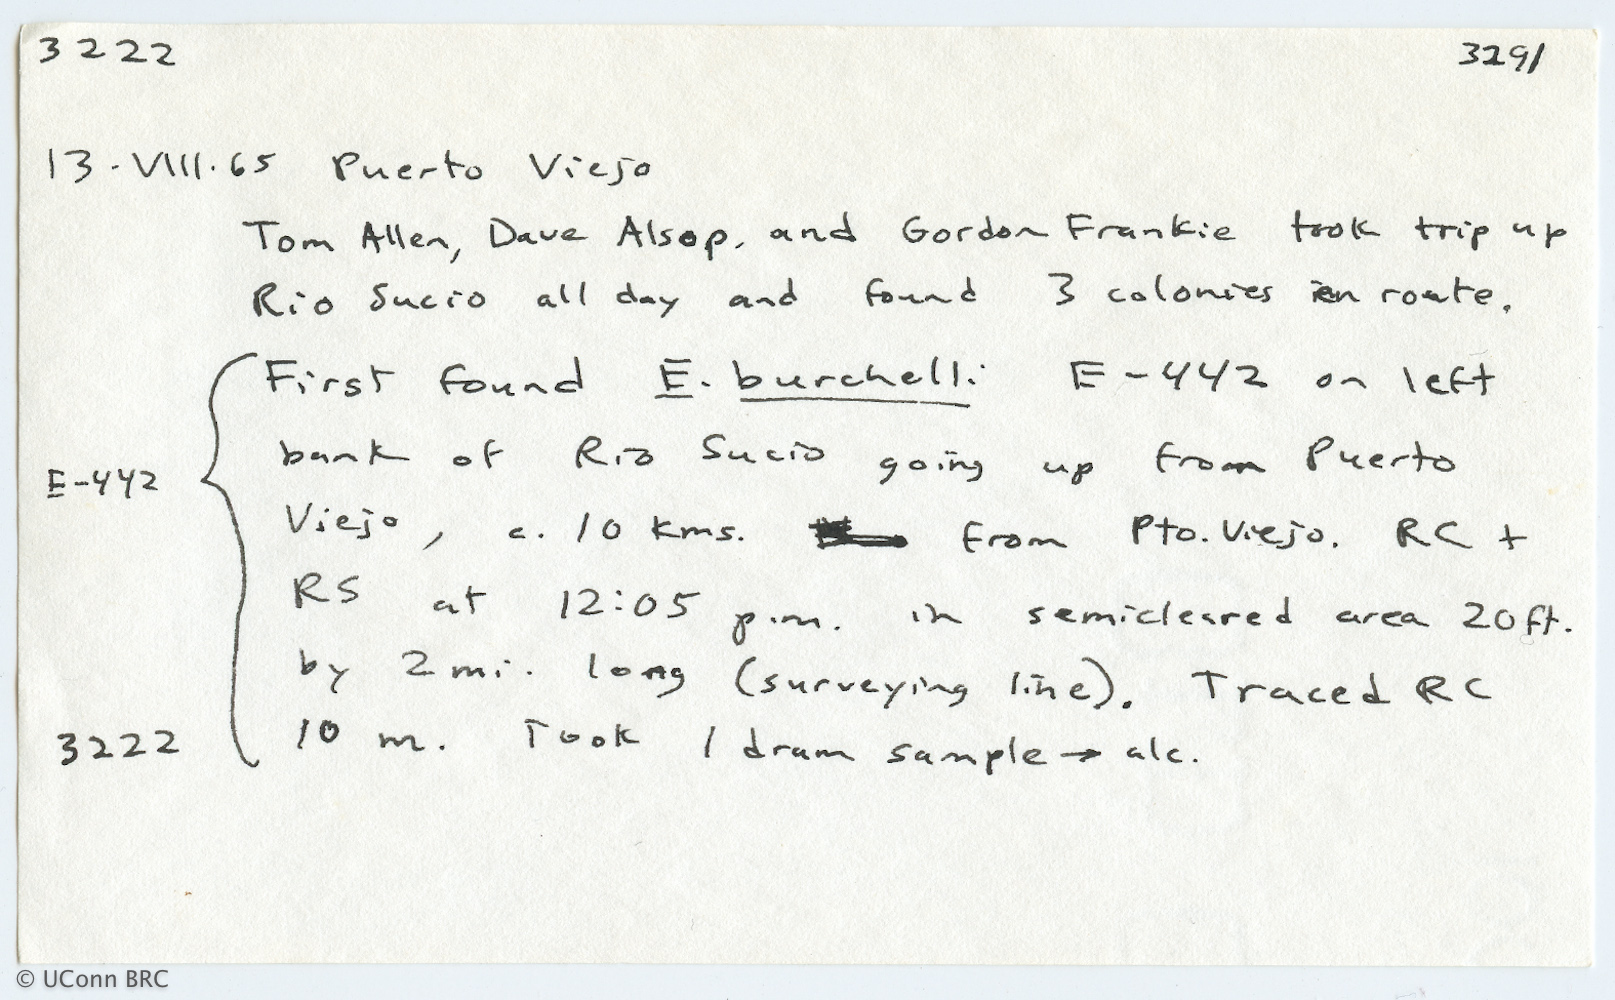 3222 3291
13.VIII.65 Puerto Viejo
Tom Allen, Dave Alsop, and Gordon Frankie took trip up
Rio Sucio all day and found 3 colonies en route.
First found E. burchelli E-442 on left
bank of Rio Sucio going up from Puerto
E-442
Viejo, c. 10 kms. from Pto. Viejo. RC +
RS at 12:05 p.m. in semicleared area 20ft.
by 2 mi. long (surveying line). Traced RC
3222 10 m. Took 1 dram sample → alc.
© UConn BRC